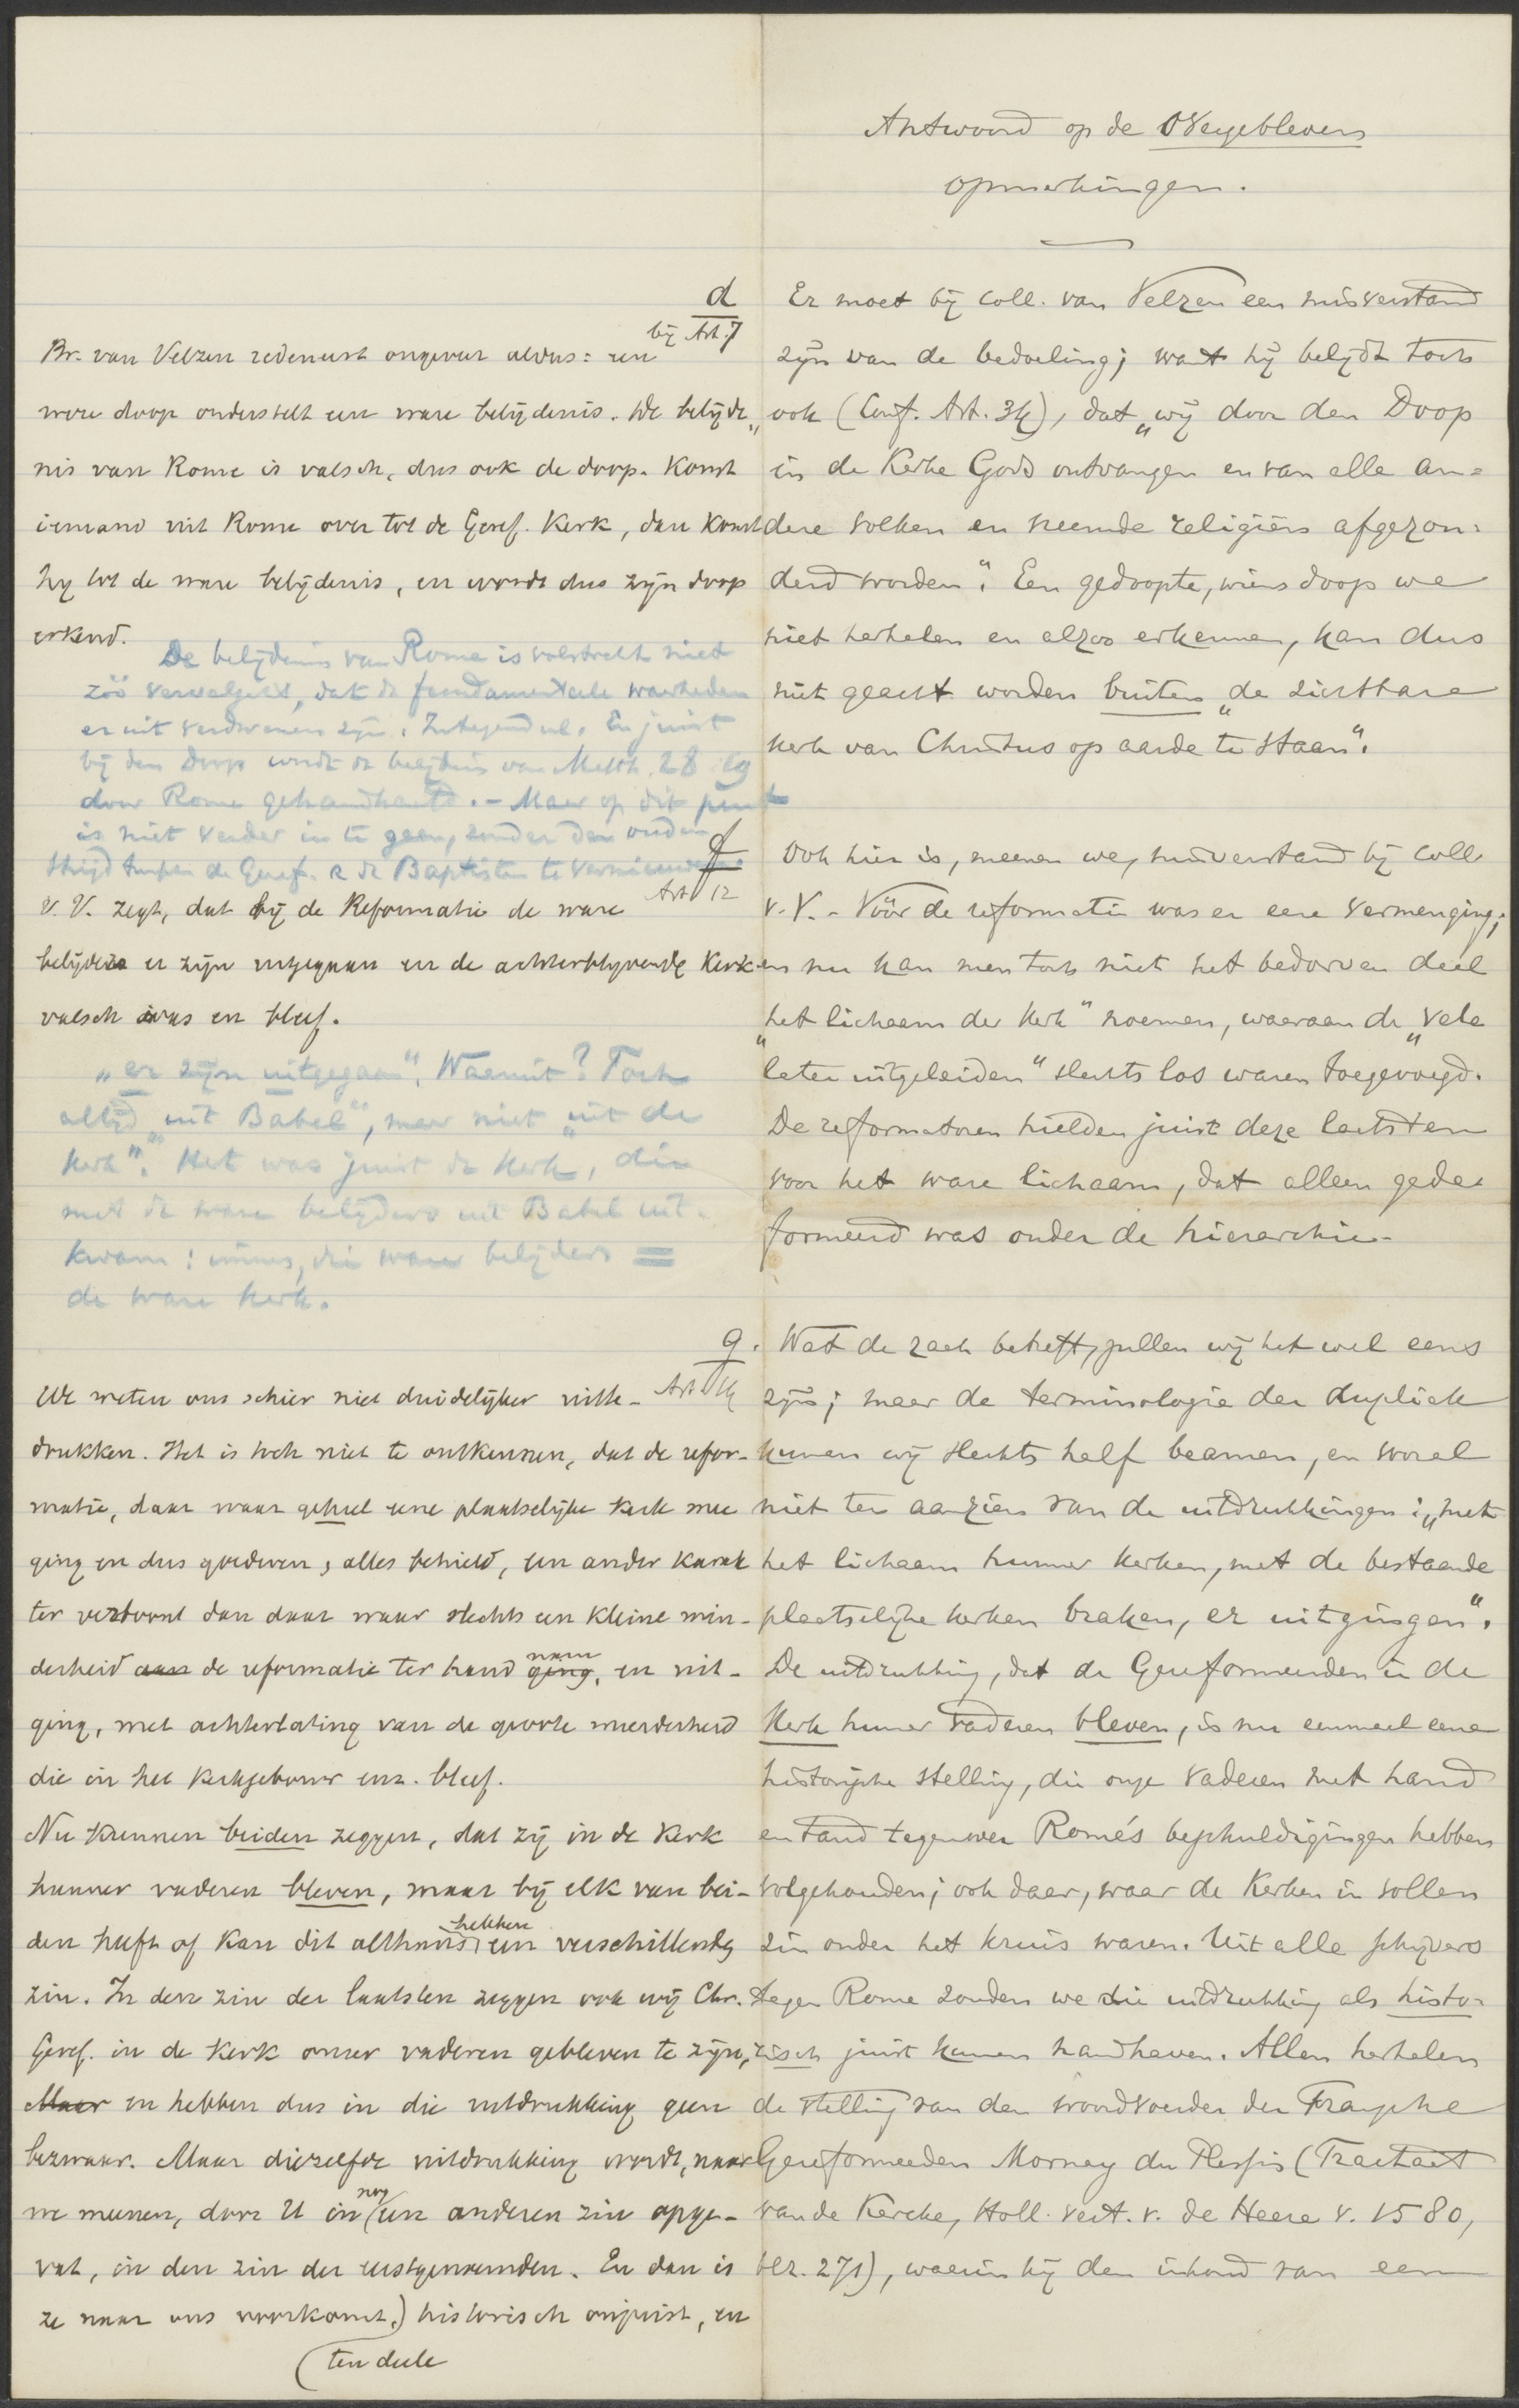 Antwoord op de overgebleven
opmerkingen.
d
bij Art. 7
Er moet bij Coll. van Velzen een misverstand
zijn van de bedoeling; want hij belijdt toch
ook (Conf. Art. 34), dat „wij door den Doop
in de Kerke Gods ontvangen en van alle an=
dere volken en vreemde religiën afgezon=
derd worden“. Een gedoopte, wiens doop we
niet herhalen en alzoo erkennen, kan dus
niet geacht worden buiten „de zichtbare
kerk van Christus op aarde te staan“.
Br. van Velzen redeneert ongeveer aldus: een
ware doop onderstelt een ware belijdenis. De belijde„
nis van Rome is valsch, dus ook de doop. Komt
iemand uit Rome over tot de Geref. Kerk, dan komt
hij tot de ware belijdenis, en wordt dus zijn doop
erkend.
De belijdenis van Rome is volstrekt niet
zóó vervalscht, dat de fundamenteele waarheden
er uit verdwenen zijn. Integendeel. En juist
bij den Doop wordt de belijdenis van Matth. 28:19
door Rome gehandhaafd. – Maar op dit punt
is niet verder in te gaan, zonder den ouden
strijd tusschen de Geref. & de Baptisten te vernieuwen.
f
Art. 12
Ook hier is, meenen we, misverstand bij Coll.
v. V. – Vóór de reformatie was er eene vermenging;
en nu kan men toch niet het bedorven deel
„het lichaam der Kerk“ noemen, waaraan de „vele
later uitgeleiden“ slechts los waren toegevoegd.
De reformatoren hielden juist deze laatsten
voor het ware lichaam, dat alleen gede=
formeerd was onder de hierarchie.
V. V. zegt, dat bij de Reformatie de ware
belijders er zijn uitgegaan en de achterblijvende Kerk
valsch was en bleef.
„er zijn uitgegaan“. Waaruit? Toch
altijd „uit Babel“, maar niet „uit de
kerk“. Het was juist de Kerk, die
met de ware belijders uit Babel uit=
kwam: immers, die ware belijders =
de ware kerk.
g.
Art. 14
Wat de zaak betreft, zullen wij het wel eens
zijn; maar de terminologie der dupliek
kunnen wij slechts half beamen, en vooral
niet ten aanzien van de uitdrukkingen: „met
het lichaam hunner kerken, met de bestaande
plaatselijke kerken braken, er uitgingen“.
De uitdrukking, dat de Gereformeerden in de
Kerk hunner vaderen bleven, is nu eenmaal eene
historische stelling, die onze vaderen met hand
en tand tegenover Rome's beschuldigingen hebben
volgehouden; ook daar, waar de Kerken in vollen
zin onder het kruis waren. Uit alle schrijvers
tegen Rome zouden we die uitdrukking als histo=
risch juist kunnen handhaven. Allen herhalen
de stelling van den woordvoerder der Fransche
Gereformeerden Mornay du Plessis (Tractaet
van de Kercke, Holl. vert. v. de Heere v. 1580,
blz. 271), waarin hij den inhoud van een
We weten ons schier niet duidelijker uit te-
drukken. Het is toch niet te ontkennen, dat de refor-
matie, daar waar geheel eene plaatselijke kerk mee
ging en dus goederen, alles behield, een ander karak
ter vertoont dan daar waar slechts een kleine min-
derheid de reformatie ter hand nam, en uit-
ging, met achterlating van de groote meerderheid
die in het kerkgebouw enz. bleef.
Nu kunnen beiden zeggen, dat zij in de Kerk
hunner vaderen bleven, maar bij elk van bei-
den heeft of kan dit althans hebben een verschillenden
zin. In den zin der laatsten zeggen ook wij Chr.
Geref. in de Kerk onzer vaderen gebleven te zijn,
en hebben dus in die uitdrukking geen
bezwaar. Maar diezelfde uitdrukking wordt, naar
we meenen, door U in nog een anderen zin opge-
vat, in den zin der eerstgenoemden. En dan is
ze naar ons voorkomt, ten deele historisch onjuist, en